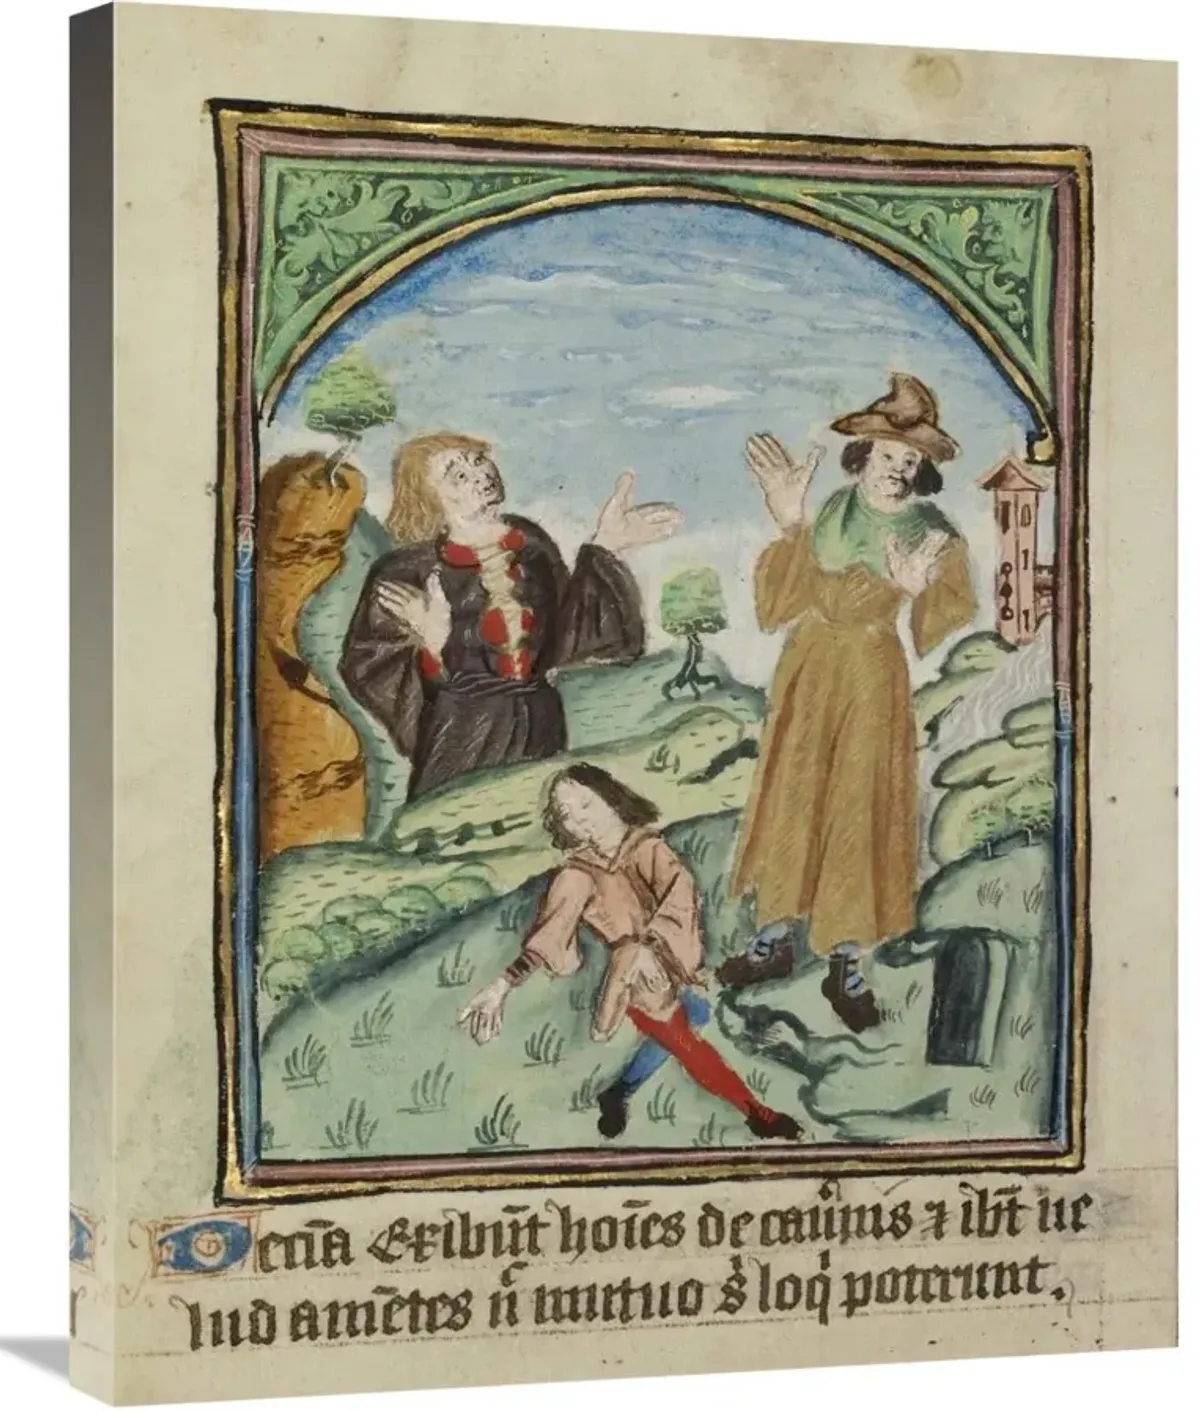 Decīa exibūt hoīes de cauīnis ⁊ ibūt ue
lud amētes ⁊ n̄ mutuo sͥ loqͥ poterunt.